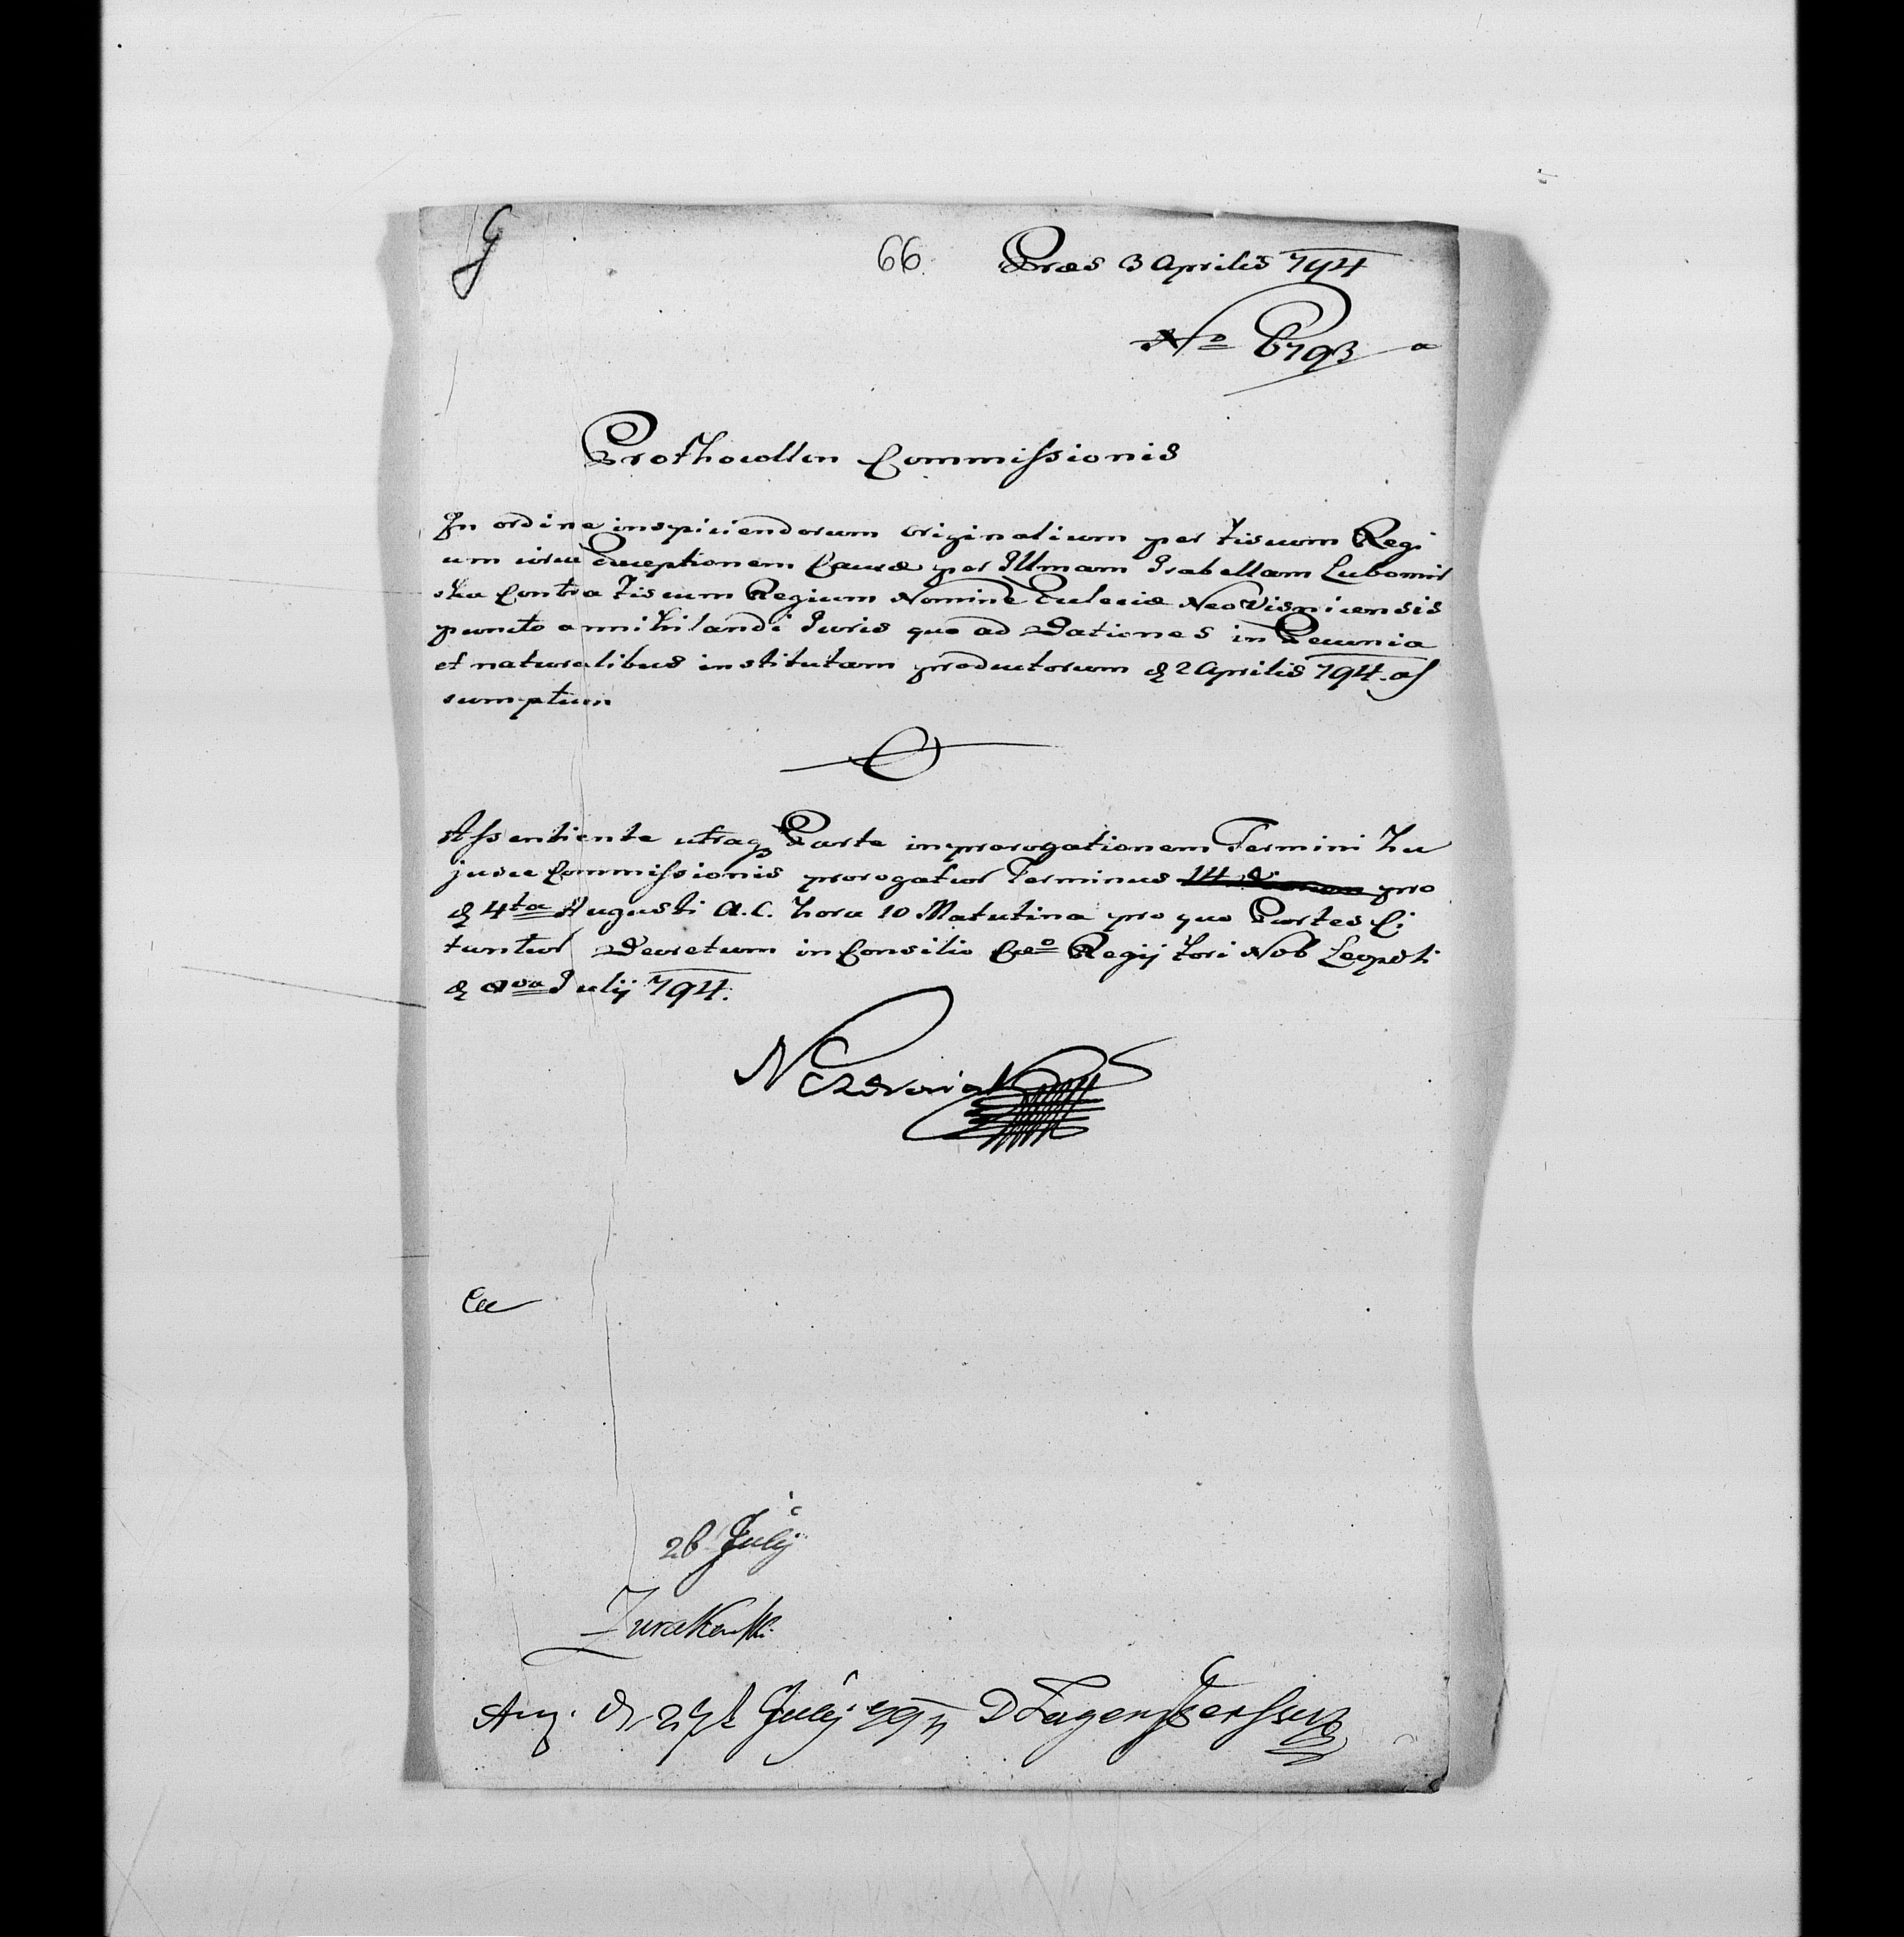 G
66. Præs 3 Aprilis 794
No 6793
Prothocollon Commissionis
In ordine inspiciendorum originalium per Fiscum Regi
um circa Exceptionem Causæ per Illmam Isabellam Lubomir
ska Contra Fiscum Regium Nomine Eclesiæ NeoVisnicensis
puncto annihilandi Juris quo ad Dationes in Pecunia
et naturalibus institutam productorum d 2 Aprilis 794. as
sumptum
Assentiente utraq Parte in prorogationem Termini hu
jusce Commissionis prorogatur Terminus pro
d 4ta Augusti a. c. hora 10 Matutina pro quo Partes Ci
tantur Decretum in Consilio Cæo Regij Fori Nob Leopoli
d July 794.
26 July
Zurakowski
27 July 794